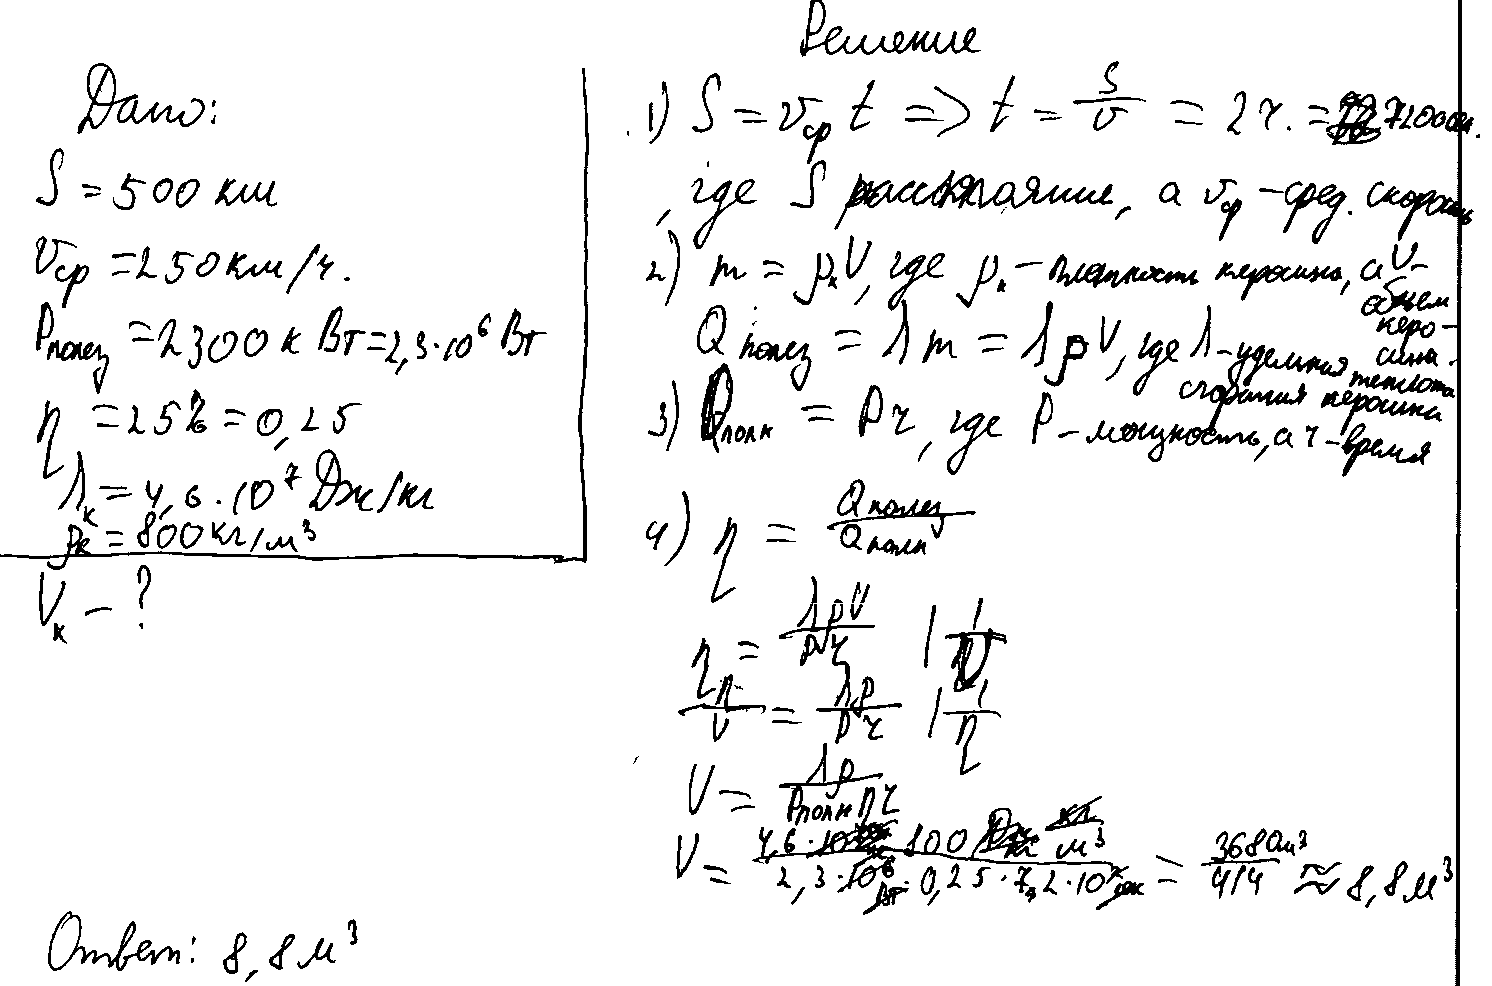 Решение
Дано:
S = 500 км
vср = 250 км/ч.
Pполез = 2300 кВт = 2,3·10⁶ Вт
η = 25% = 0,25
λк = 4,6·10⁷ Дж/кг
ρк = 800 кг/м³
Vк – ?
1) S = vср t => t = S/v = 2ч. = 7200сек.
, где S расстояние, а vср – сред. скорость
2) m = ρкV, где ρк – плотность керосина, а V – объем керосина.
Qполез = λm = λρV, где λ – удельная теплота сгорания керосина
3) Qполн = Pτ, где P – мощность, а τ – время
4) η = Qполез/Qполн
η = λρV/Pτ | 1/V
η/V = λρ/Pτ | 1/η
V = λρ/Pполн η τ
V = 4,6·10 800 кг/м³ / 2,3·10⁶ Вт·0,25·7,2·10 сек = 3680м³/414 ≈ 8,8м³
Ответ: 8,8м³